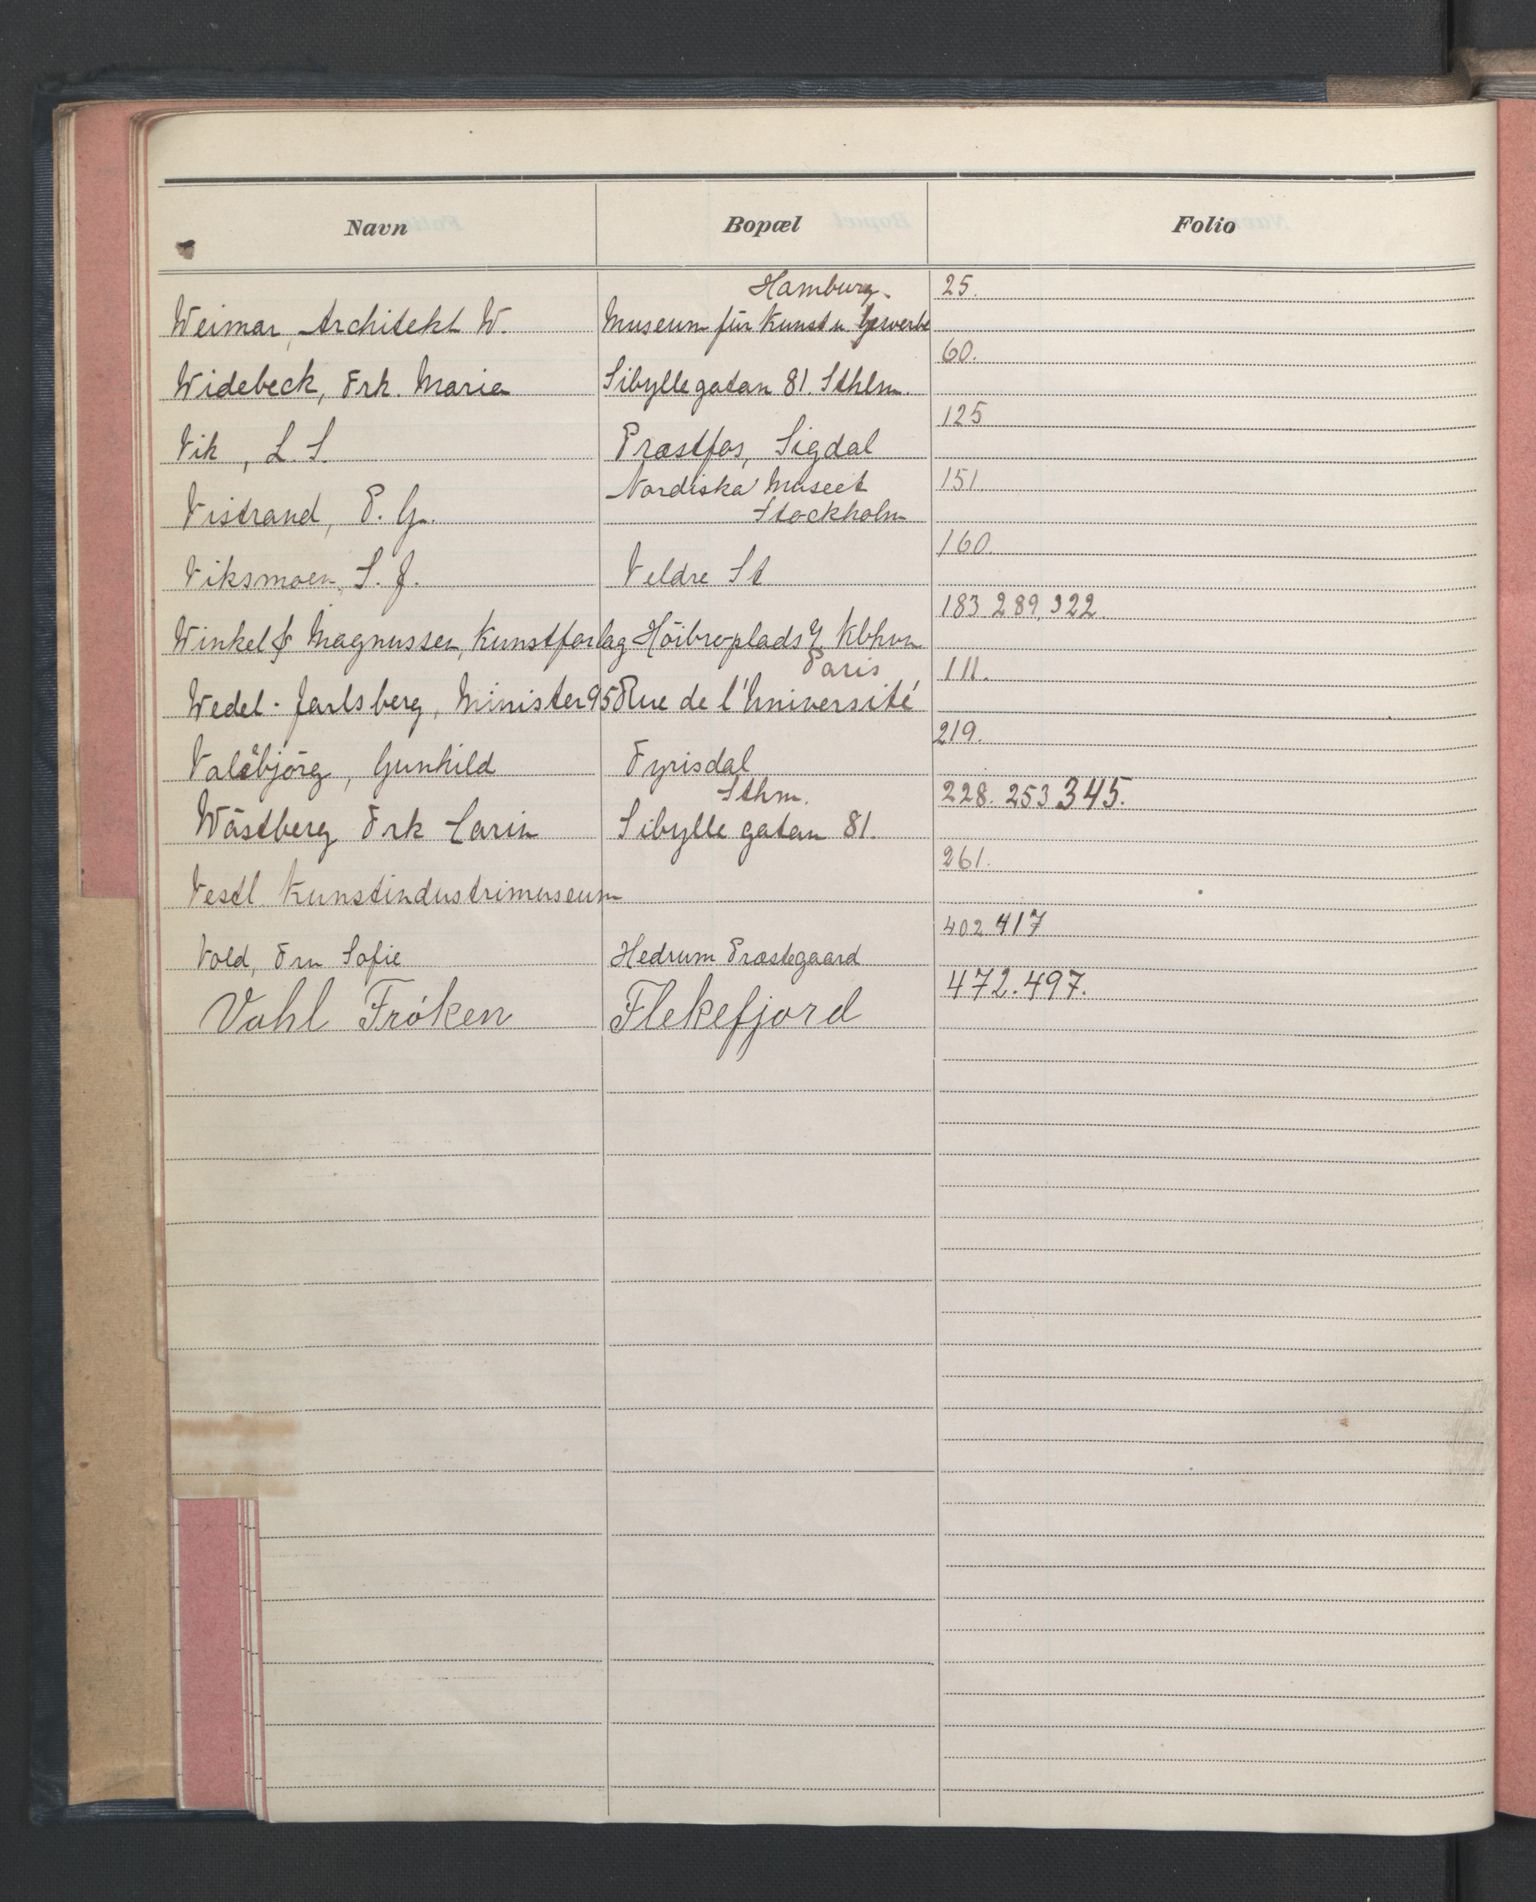 Navn Bopæl Folio
Hamburg. 25.
Weimar, Architekt W. Museum für Kunst u. Gewerbe
60.
Widebeck, Frk. Maria Sibyllegatan 81. Sthlm.
125
Vik, L. S. Præstfos, Sigdal
Nordiska Museet 151.
Vistrand, P. G. Stockholm
160.
Viksmoen, S. J. Veldre St
183 289, 322.
Winkel & Magnussen, Kunstforlag Höibroplads 7 Kbhvn
Paris 111.
Wedel-Jarlsberg, Minister 95 Rue de l'Université
219.
Valebjörg, Gunhild Fyrisdal
Sthm. 228. 253 345.
Wästberg Frk Carin Sibylle gatan 81.
261.
Vestl. Kunstindustrimuseum
402 417
Vold, Fru Sofie Hedrum Præstegaard
472. 497.
Vahl Frøken Flekefjord